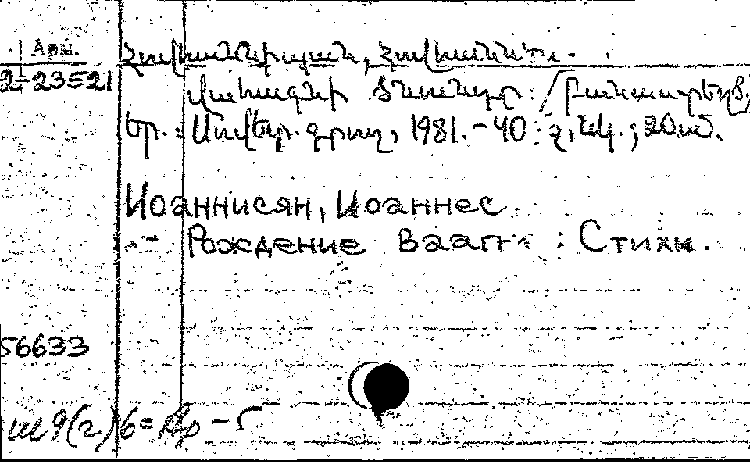 Арм.
2-23521
Հովհաննիսյան, Հովհաննես.
Վահագնի ծնունդը: /
Եր.: Սովետ. գրող, 1981.-40 : նկ.; 20սմ.
Иоаннисян, Иоаннес
Рождение Ваагна : Стихи.
56633